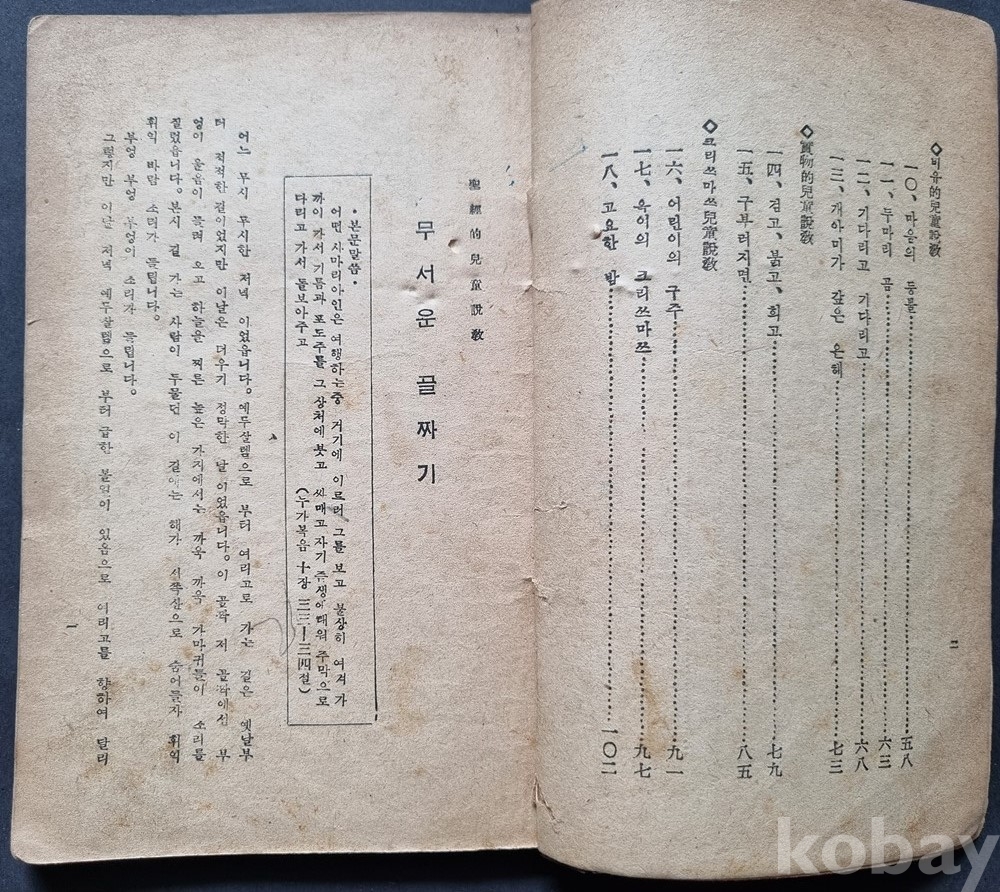 ◇비유的兒童說敎
一〇、마음의 등불 五八
一一、두마리 곰 六三
一二、기다리고 기다리고 六八
一三、개아미가 갚은 은혜 七三
◇實物的兒童說敎
一四、검고、붉고、희고 七九
一五、구부러지면 八五
◇크리쓰마쓰兒童說敎
一六、어린이의 구주 九一
一七、옥이의 크리쓰마쓰 九七
一八、고요한 밤 一〇二
二
聖經的兒童說敎
무서운 골짜기
•본문말씀•
어떤 사마리아인은 여행하는중 거기에 이르러 그를 보고 불상히 여겨 가
까이 가서 기름과 포도주를 그 상처에붓고 싸매고 자기 즘생에태워 주막으로
다리고 가서 돌보아주고
(누가복음 十장 三三—三四절)
어느 무시 무시한 저녁 이었읍니다。예루살렘으로 부터 여리고로 가는 길은 옛날부
터 적적한 길이었지만 이날은 더우기 정막한 날 이었읍니다。이 골짝 저 골짝에선 부
엉이 울음이 들려 오고 하늘을 찌른 높은 가지에서는 까욱 까욱 가마귀들이 소리를
질렀읍니다。본시 길 가는 사람이 두물던 이 길에는 해가 서쪽산으로 숨어들자 휘익
휘익 바람 소리가 들립니다。
부엉 부엉 부엉이 소리가 들립니다。
그렇지만 이날 저녁 예루살렘으로 부터 급한 볼일이 있음으로 여리고를 향하여 달리
一
kobay